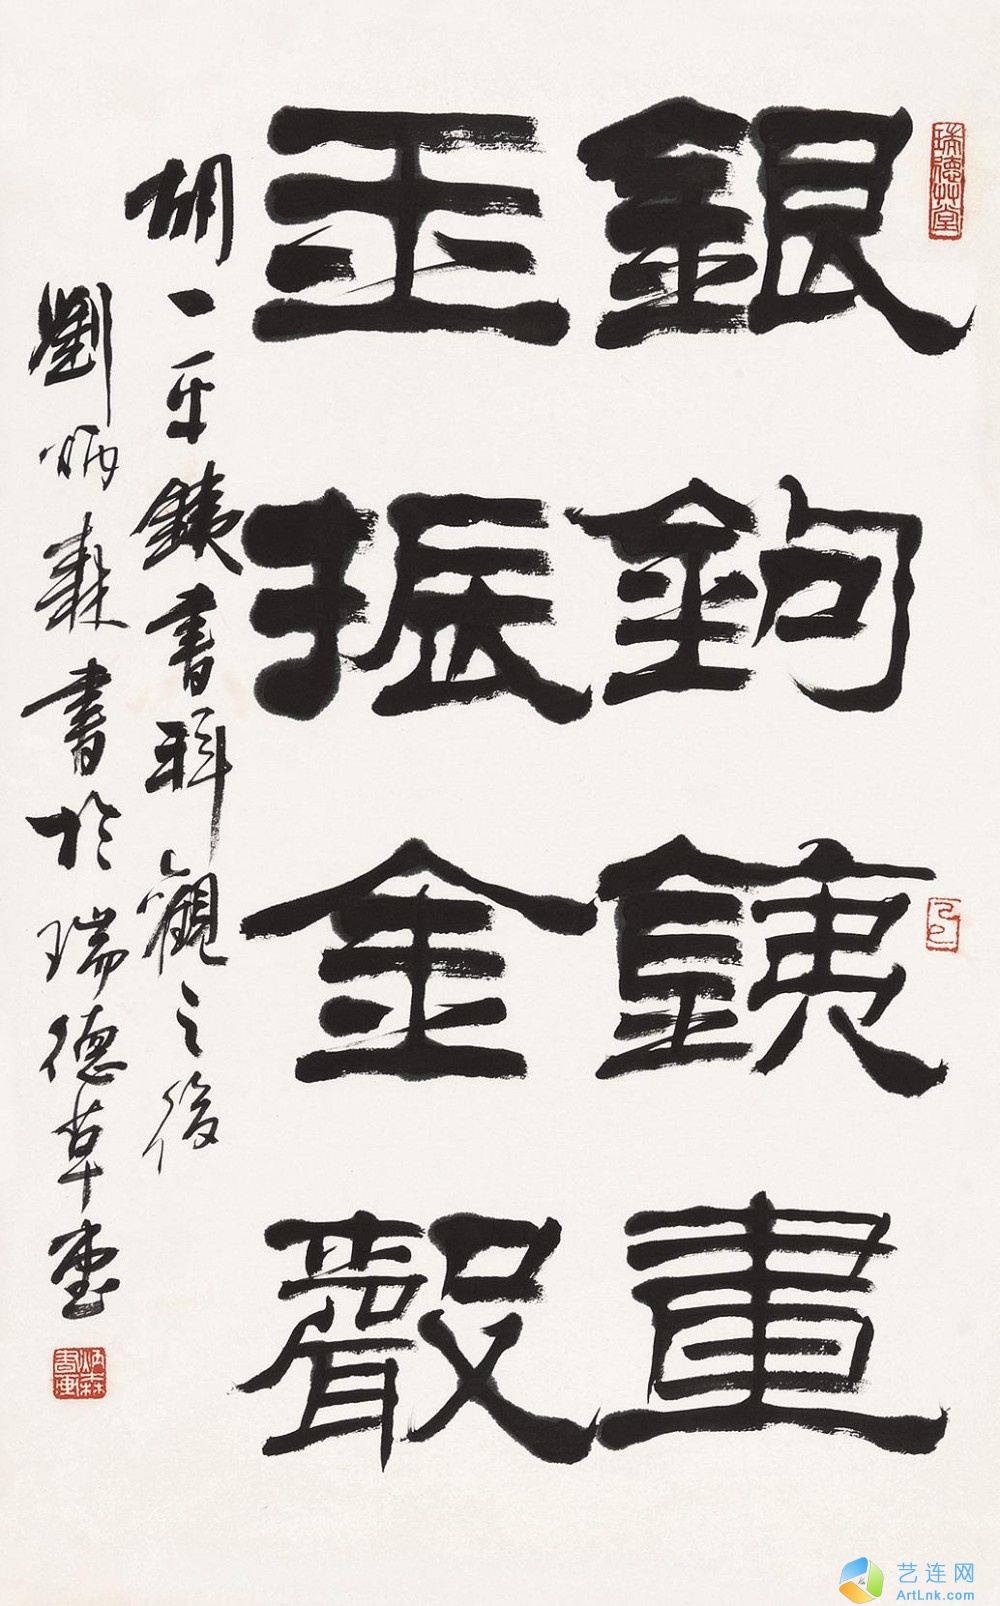 瑞德艸堂
銀鉤銕畫
玉振金聲
胡一平銕書拜觀之後
劉炳森書於瑞德草堂
炳森書画
艺连网
ArtLnk.com